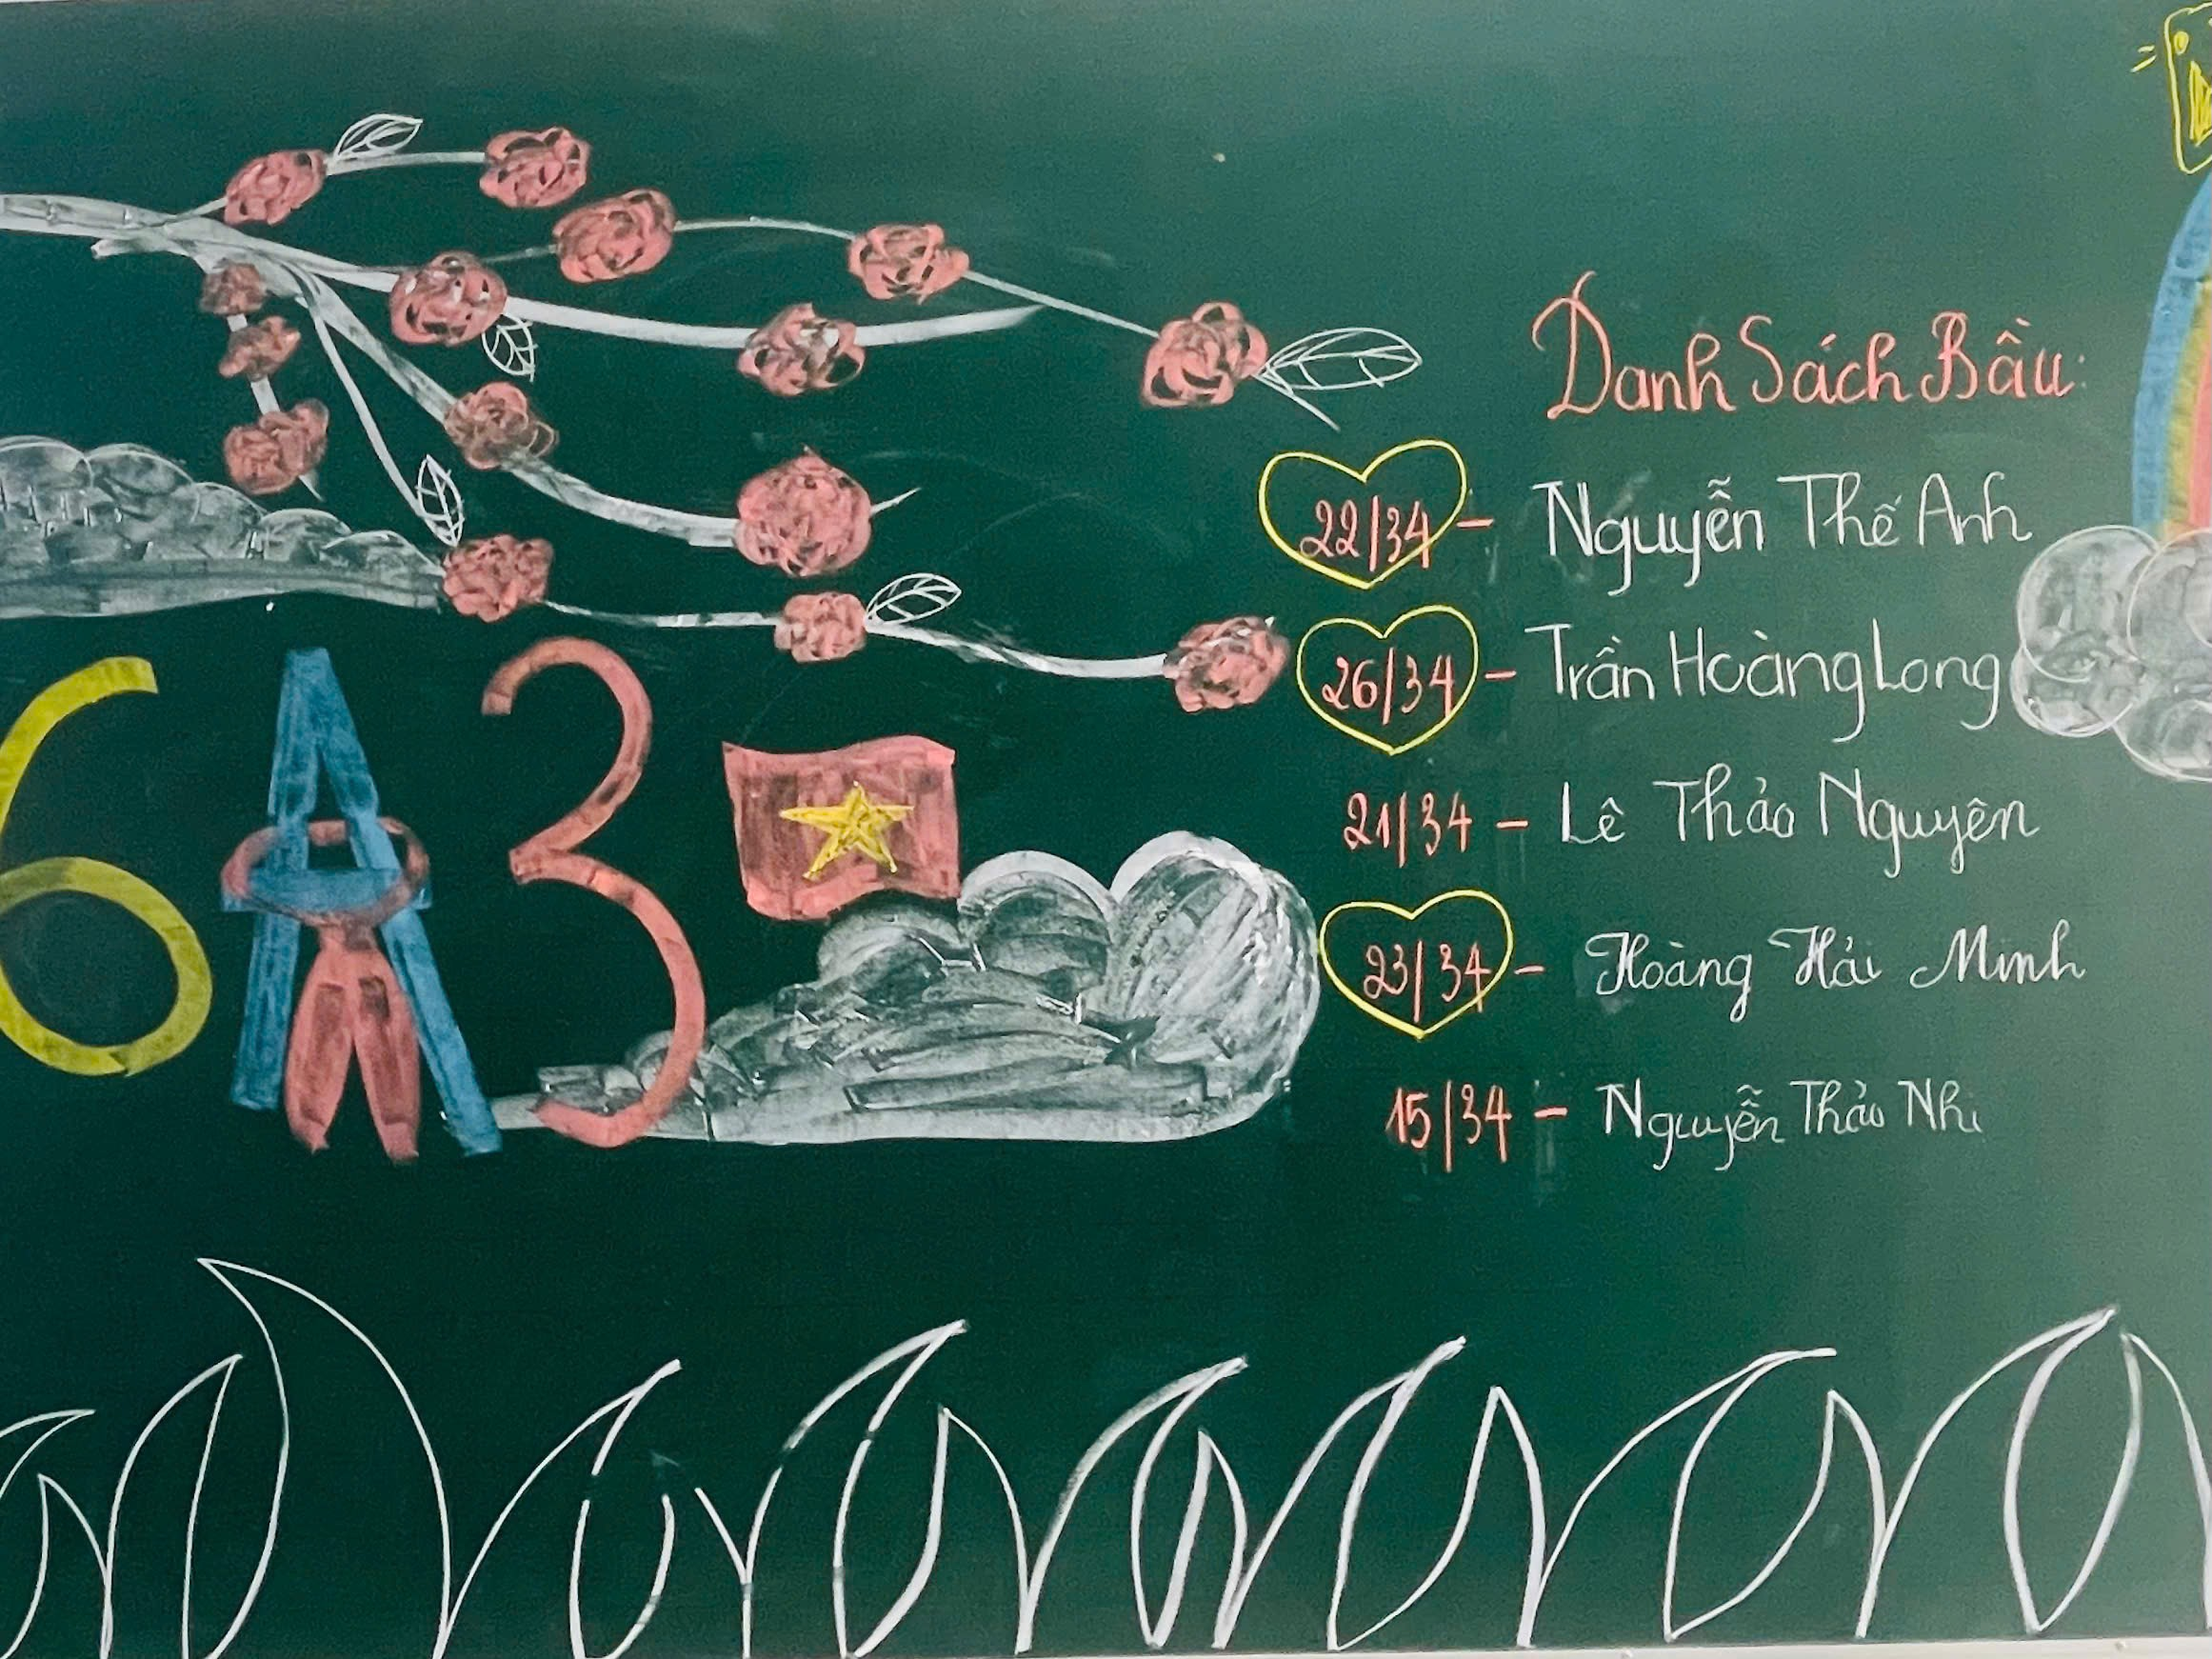 Danh Sách Bầu:
22/34 - Nguyễn Thế Anh
26/34 - Trần Hoàng Long
21/34 - Lê Thảo Nguyên
23/34 - Hoàng Hải Minh
15/34 - Nguyễn Thảo Nhi
6A3